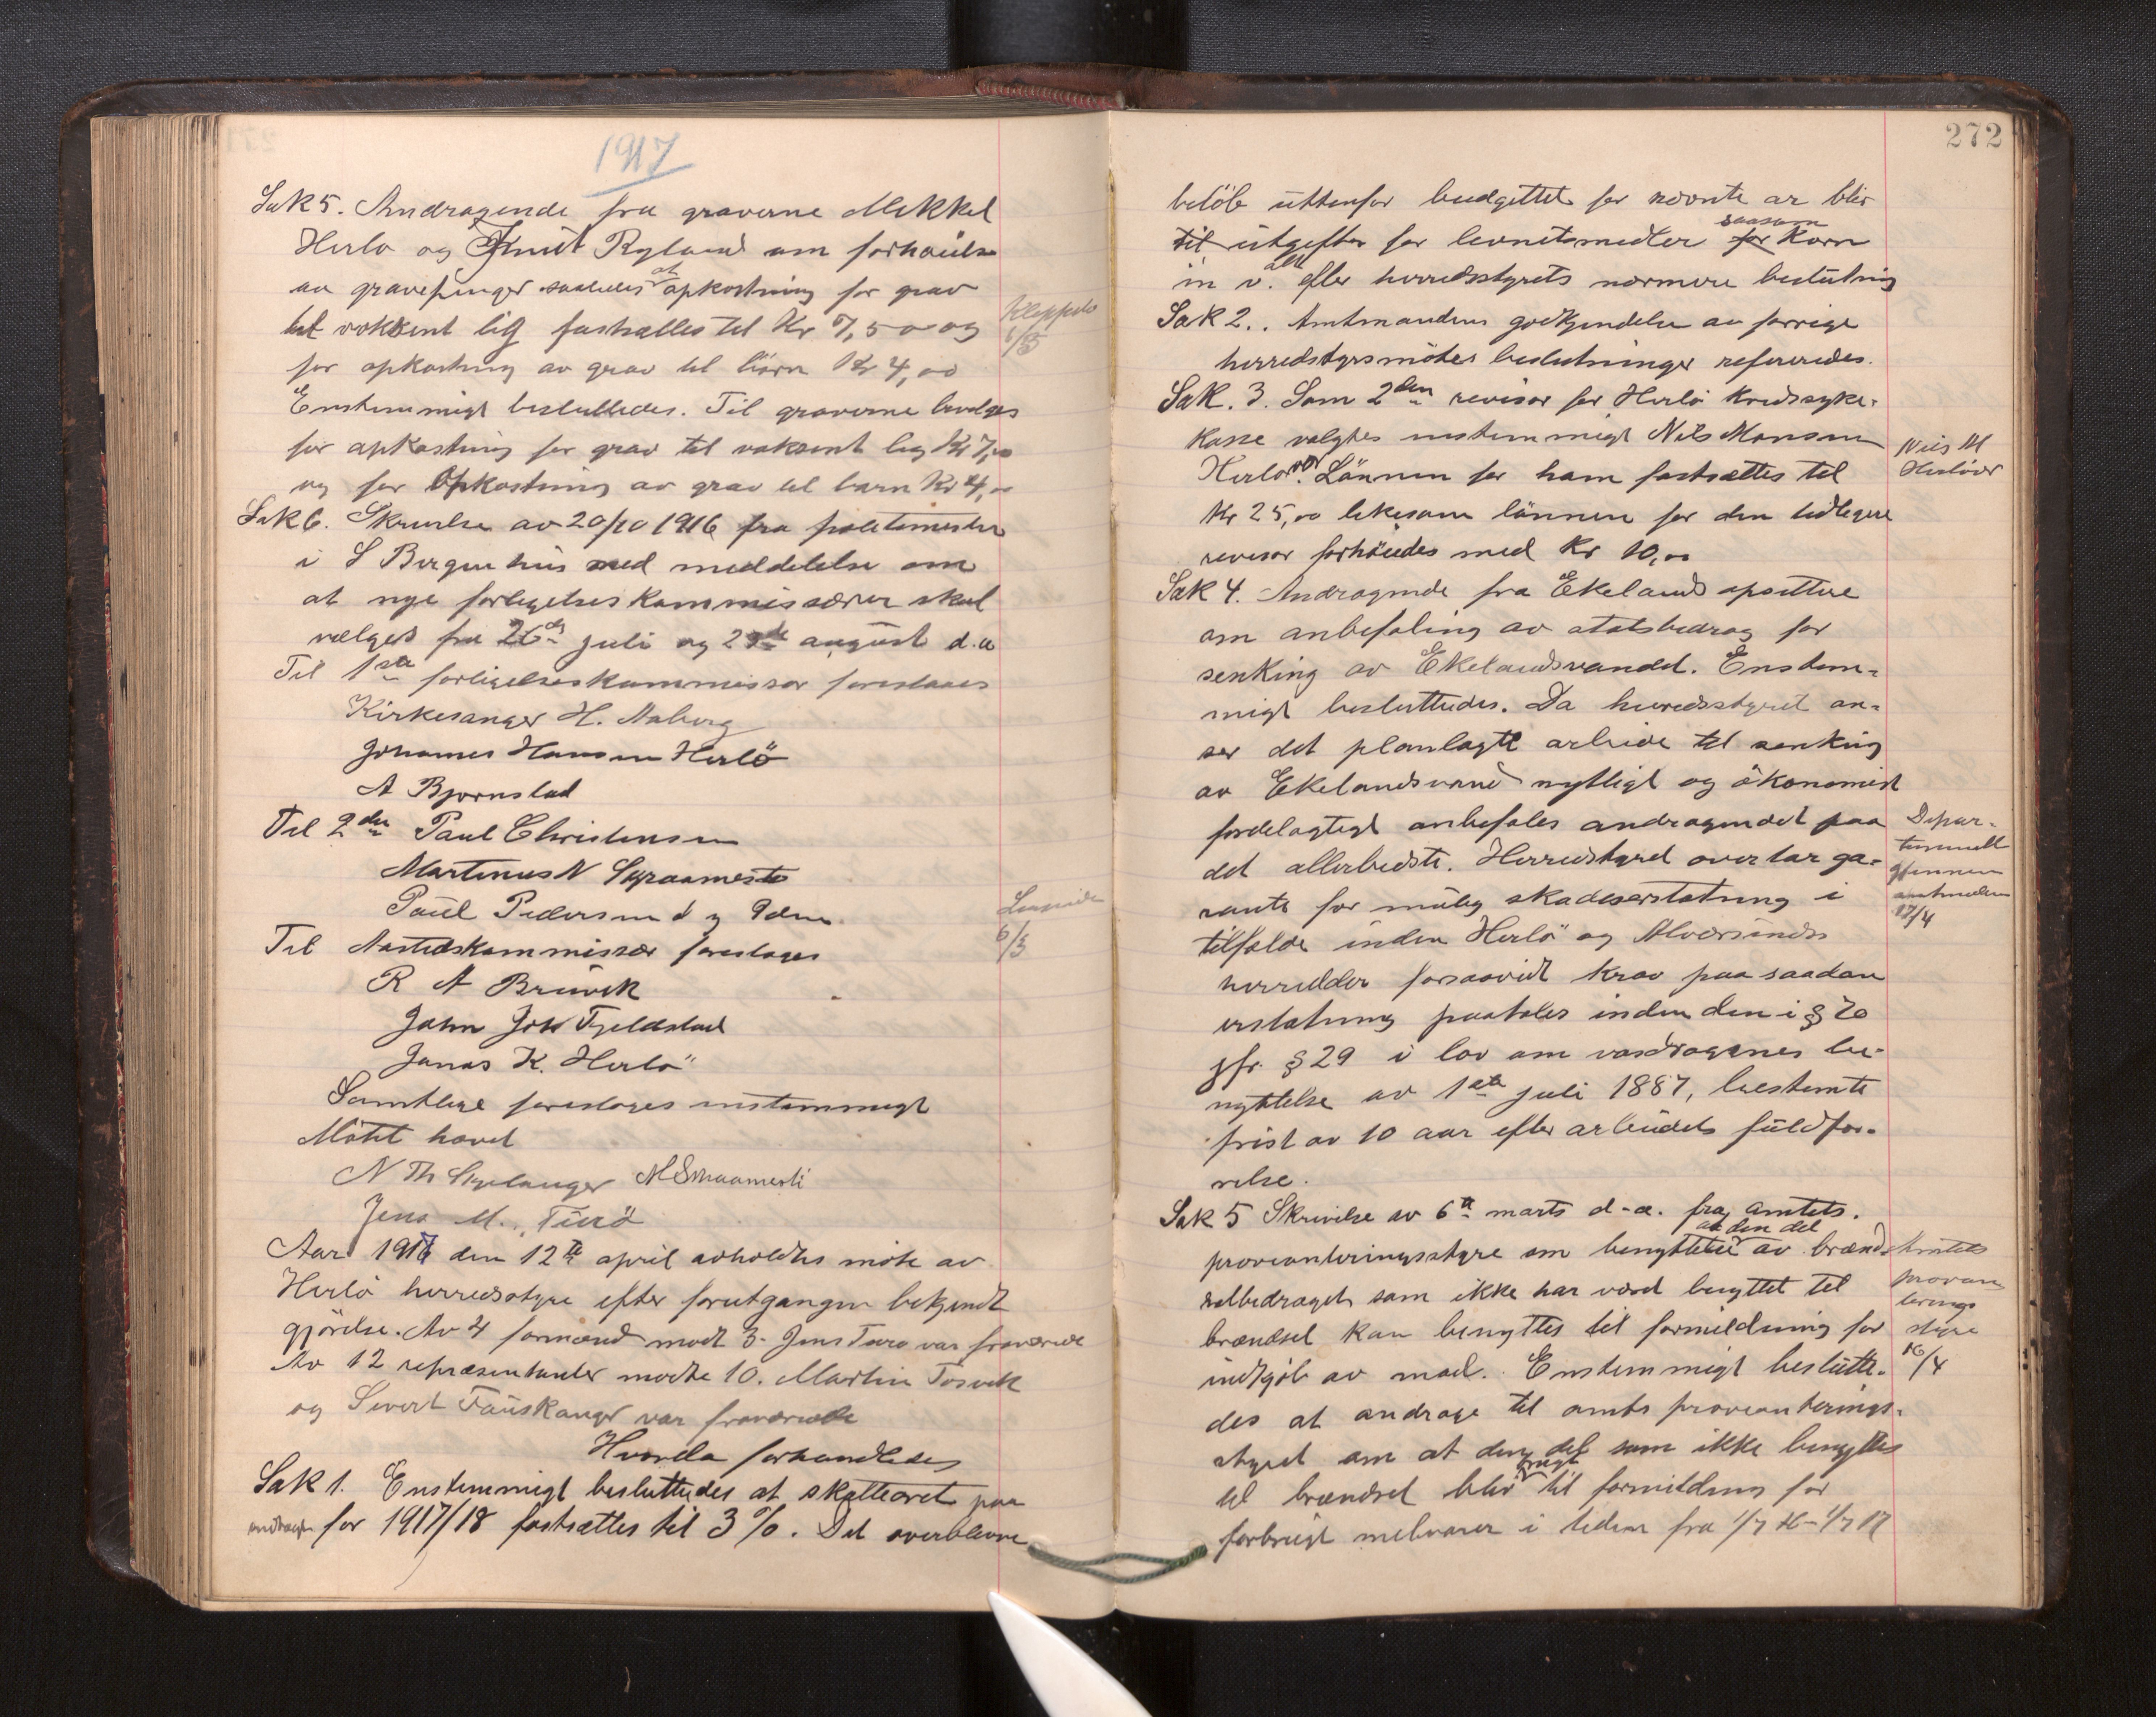 1917
Sak 5. Andragende fra graverne Mikkel
Herlø og Knut Ryland om forhøielse
av gravepenger saaledes at opkastning for grav
til voksent lig fastsættes til Kr 7,50 og
for opkastning av grav til barn Kr 4,00
Enstemmigt besluttedes. Til graverne
for opkastning for grav til voksent lig Kr 7,00
og for opkastning av grav til barn Kr 4,00
Kleppestø
6/3
Sak 6. Skrivelse av 20/10 1916 fra politimester
i S Bergenhus med meddelelse om
at nye forligelseskommissærer skal
vælges fra 26de juli og august d.a
Til 1ste forligelseskommissær foreslaaes
Kirkesanger H. Aaberg
Johannes Hansen Herlö
A Bjørnstad
Til 2den Paul Christensen
Martinus N Skraamestø
Paul Pedersen
Til Aastedskommissær foreslages
6/3
R A Breivik
John Joh Fjeldstad
Jonas K. Herlö
Samtlige foreslages enstemmigt
Mötet hævet
N Th Skjelanger M Skraamestö
Jens M. Turö
Aar 1917 den 12te april avholdtes möte av
Herlö herredsstyre efter forutgangen bekjendt
gjörelse. Av 4 formænd mødt 3. Jens Turø var fraværende
Av 12 repræsentanter mødte 10. Martin Tosvik
og Sivert Fauskanger var fraværende
Hvorda forhandledes
Sak 1. Enstemmigt besluttedes at skatteøret paa
indtægt for 1917/18 fastsættes til 3 %. Det overblevne
272
belöb uttenfor budgettet for nævnte ar blir
til utgifter for levnetsmedler for saasom Korn
m v. alt efter herredsstyrets nærmere beslutning
Sak 2.. Amtmandens godkjendelse av forrige
herredstyrsmötes beslutninger refereredes.
Sak. 3. Som 2den revisor for Herlö kredssyke-
kasse valgtes enstemmigt Nils Monsen
Herløvær. Lönnen for ham fastsættes til
Kr 25,00 likesom lönnen for den tidligere
revisor forhöiedes med Kr 10,00
Nils M
Herlövær
Sak 4. Andragende fra Ekelands opsittere
om anbefaling av statsbedrag for
senking av Ekelandsvandet. Enstem-
migt besluttedes. Da herredsstyret an-
ser det planlagte arbeide til senking
av Ekelandsvand nyttigt og ökonomisk
fordelagtigt anbefales andragendet paa
det allerbedste. Herredstyret overtar ga-
ranti for mulig skadeserstatning i
tilfælde inden Herlö og Alversunds
herredder forsaavidt krav paa saadan
erstatning paatales inden den i § 20
jfr. § 29 i lov om vasdragenes be-
nyttelse av 1ste juli 1887, bestemte
frist av 10 aar efter arbeidets fuldfør-
relse.
Depar-
tementet
gjennem
amtmanden
17/4
Sak 5 Skrivelse av 6te marts d-a. fra amtets.
provianteringsstyre om benyttelse at den del av brænd-
selbedraget som ikke har været benyttet til
brændsel kan benyttes til formildning for
indkjöb av mad. Enstemmigt beslutte-
des at andrage til amts provianterings-
styret om at den del som ikke benyttes
til brændsel blir brugt til formildning for
forbrugt melvarer i tiden fra 1/7 16 - 1/7 17
Amtets
provian
terings
styre
16/4